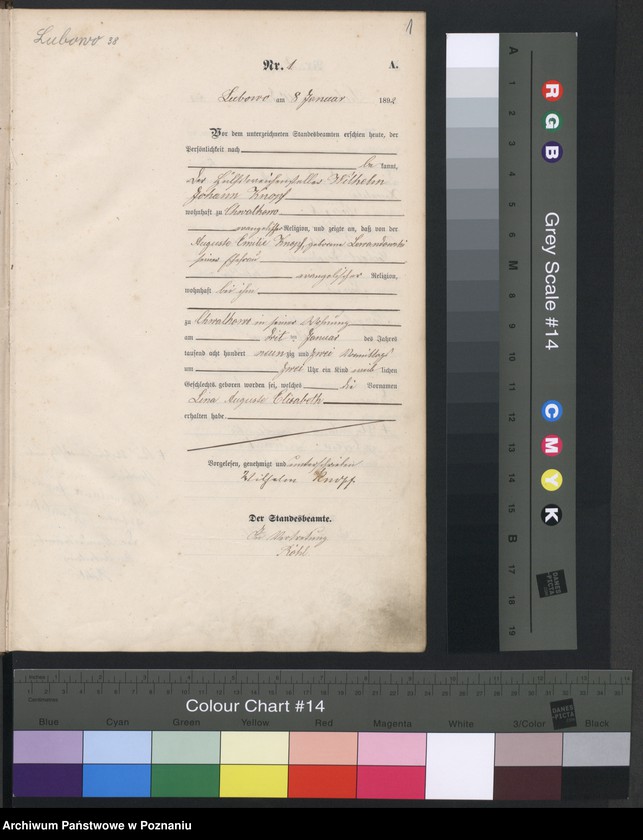 Lubowo 38
1
Nr. 1 A.
Lubowo am 8 Januar 1892
Vor dem unterzeichneten Standesbeamten erschien heute, der
Persönlichkeit nach
be kannt,
der Wilhelm
Johann Knopf
wohnhaft zu Chwalkowo
evangelischer Religion, und zeigte an, daß von der
Auguste Emilie Knopf, geborene Lewandowski
seiner Ehefrau
evangelischer Religion,
wohnhaft bei ihm
zu Chwalkowo in seiner Wohnung
am Januar des Jahres
tausend acht hundert neunzig und zwei Vormittags
um zwei Uhr ein Kind weiblichen
Geschlechts geboren worden sei, welches die Vornamen
Lina Auguste Elisabeth
erhalten habe
Vorgelesen, genehmigt und unterschrieben
Wilhelm Knopf
Der Standesbeamte.
In Vertretung
A 1 2 3 4 5 6 M 8 9 10 11 12 13 14 15 B 17 18 19
R G B
Grey Scale #14
C M Y K
DANES PICTA
Inches
Centimetres
Colour Chart #14
DANES PICTA
Blue Cyan Green Yellow Red Magenta White 3/Color Black
Archiwum Państwowe w Poznaniu